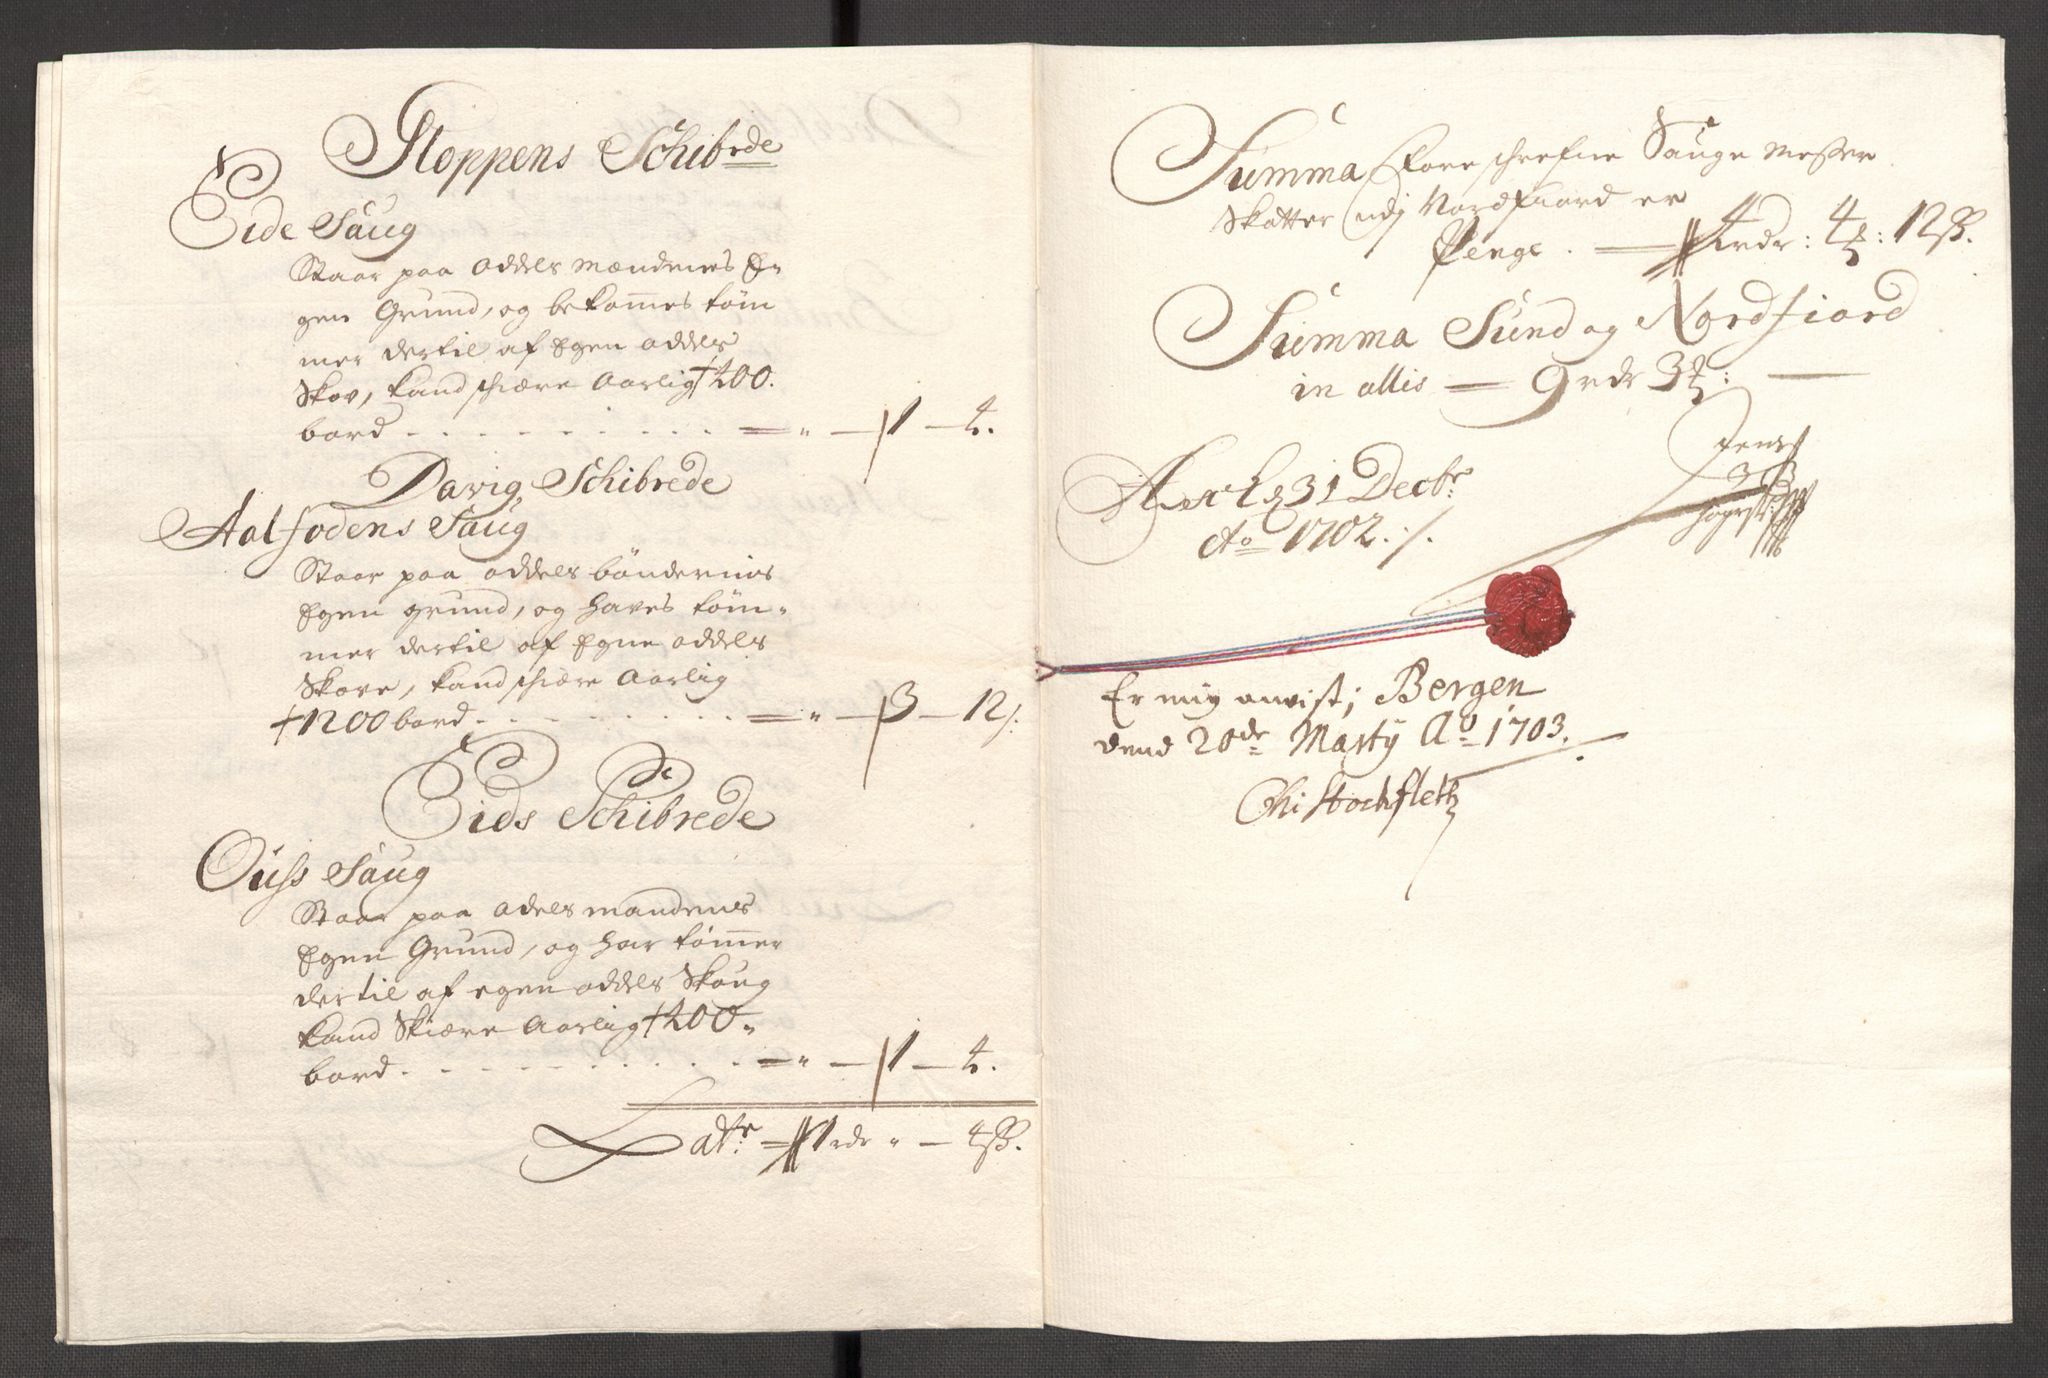 Gloppens Schibrde
Eide Saug
Staar paa oddels mændenes E-
gen Grund, og bekommes töm
mer dertil af Egen oddels
Skov, kand schiære Aarlig 400.
bord . . . . . . . . . = " — 1 — 4.
Davig Schibrede
Aalfodens Saug
Staar paa oddels bøndernis
Egen grund, og haves töm-
mer dertil af Egne oddels
Skove, kand schiære Aarlig
1200 bord . . . . . . . = " — 3 — 12 /:
Eids Schibrede
Ouss Saug
Staar paa odels mændenis
Egen Grund, og har tömmer
dertil af egen oddels Skoug
kand Skiære Aarlig 400.
bord . . . . . . . . . = " — 1 — 4.
Latr. = 1 rdr " — 4 ß.
Summa foreschrefne Sauge
Skatter udj Nordfiord er
Penge . — 4 rdr : 4 : 12 ß.
Summa Sund og Nordfiord
in allis — 9 rdr 3 : —
31 Decbr:
Ao 1702 ./.
Er mig anvist; Bergen
dend 20de Marty Ao 1703.
Chr Stockfleth